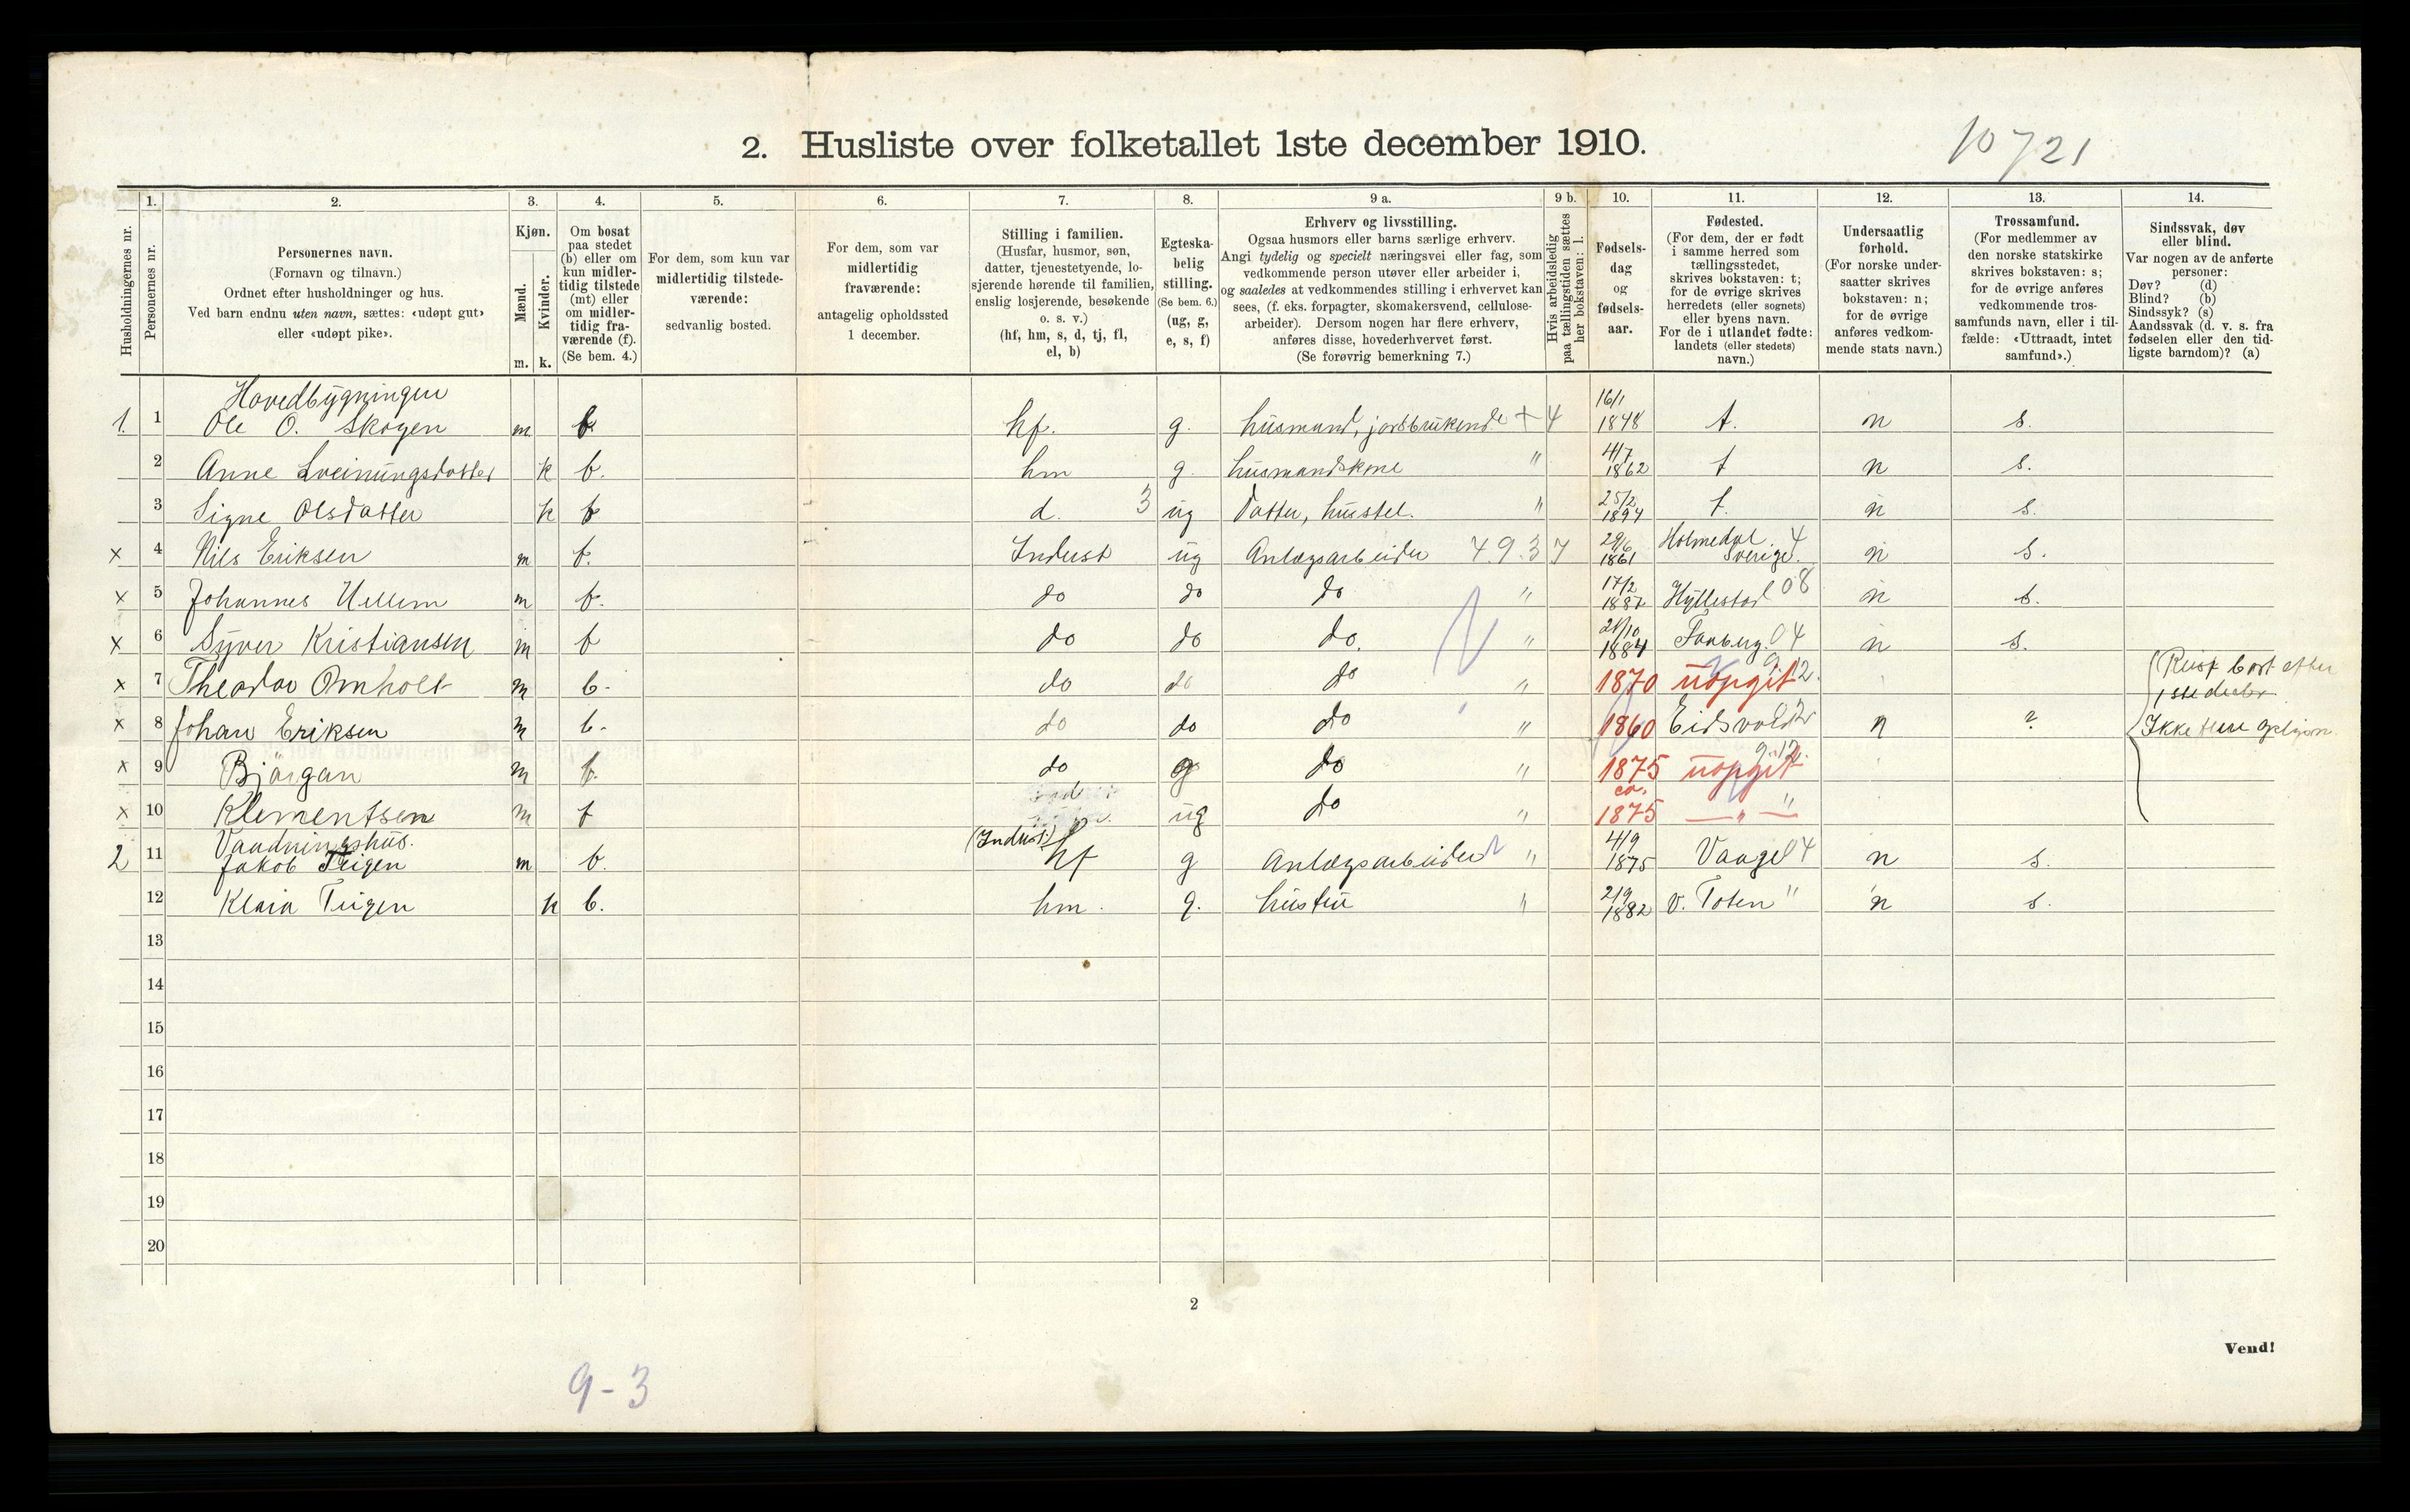 2. Husliste over folketallet 1ste december 1910.
10721
1. 2. 3. 4. 5. 6. 7. 8. 9 a. 9 b. 10. 11. 12. 13. 14.
Husholdningernes nr.
Personernes nr.
Personernes navn.
(Fornavn og tilnavn.)
Ordnet efter husholdninger og hus.
Ved barn endnu uten navn, sættes: «udøpt gut»
eller «udøpt pike».
Kjøn.
Mænd.
Kvinder.
m. k.
Om bosat
paa stedet
(b) eller om
kun midler-
tidig tilstede
(mt) eller
om midler-
tidig fra-
værende (f).
(Se bem. 4.)
For dem, som kun var
midlertidig tilstede-
værende:
sedvanlig bosted.
For dem, som var
midlertidig
fraværende:
antagelig opholdssted
1 december.
Stilling i familien.
(Husfar, husmor, søn,
datter, tjenestetyende, lo-
sjerende hørende til familien,
enslig losjerende, besøkende
o. s. v.)
(hf, hm, s, d, tj, fl,
el, b)
Egteska-
belig
stilling.
(Se bem. 6.)
(ug, g,
e, s, f)
Erhverv og livsstilling.
Ogsaa husmors eller barns særlige erhverv.
Angi tydelig og specielt næringsvei eller fag, som
vedkommende person utøver eller arbeider i,
og saaledes at vedkommendes stilling i erhvervet kan
sees, (f. eks. forpagter, skomakersvend, cellulose-
arbeider). Dersom nogen har flere erhverv,
anføres disse, hovederhvervet først.
(Se forøvrig bemerkning 7.)
Hvis arbeidsledig
paa tællingstiden sættes
her bokstaven: l.
Fødsels-
dag
og
fødsels-
aar.
Fødested.
(For dem, der er født
i samme herred som
tællingsstedet,
skrives bokstaven: t;
for de øvrige skrives
herredets (eller sognets)
eller byens navn.
For de i utlandet fødte:
landets (eller stedets)
navn.)
Undersaatlig
forhold.
(For norske under-
saatter skrives
bokstaven: n;
for de øvrige
anføres vedkom-
mende stats navn.)
Trossamfund.
(For medlemmer av
den norske statskirke
skrives bokstaven: s;
for de øvrige anføres
vedkommende tros-
samfunds navn, eller i til-
fælde: «Uttraadt, intet
samfund».)
Sindssvak, døv
eller blind.
Var nogen av de anførte
personer:
Døv? (d)
Blind? (b)
Sindssyk? (s)
Aandssvak (d. v. s. fra
fødselen eller den tid-
ligste barndom)? (a)
Hovedbygningen
1. 1 Ole O. Skogen m b. hf. g. husmand, jordbrukende + 4 16/1 1848 t. n s.
2 Anne Sveinungsdatter k b. hm g. husmandskone " 4/7 1862 t n s.
3 Signe Olsdatter k b d. 3 ug datter, husstel. " 25/2 1894 t. n s.
x 4 Nils Eriksen m b. Indust ug Anlægsarbeider 49.37 29/6 1861 Holmedal Sverige. 4 n s.
x 5 Johannes m b. do do do " 17/2 Hyllestad 08 n s.
x 6 Syver Kristiansen m b do do do. " 1884 Faaberg 04 n s.
x 7 Theodor Omholt m b. do do do " 1870 uopgit
x 8 Johan Eriksen m b. do do do " 1860 Eidsvold n ?
x 9 Bjørgan m b. do g do " 1875 uopgit
x 10 Klementsen m ug do " ca. 1875 — " —
Reist bort efter
Ikke
Vaadningshus.
2 11 Jakob Teigen m b. (Indust.) hf g Anlægsarbeider " 4/9 1875 Vaage 04 n s.
12 Klara Teigen k b. hm. g. hustru " 2/9 1882 V. Toten " n s.
13
14
15
16
17
18
19
20
2
Vend!
9-3